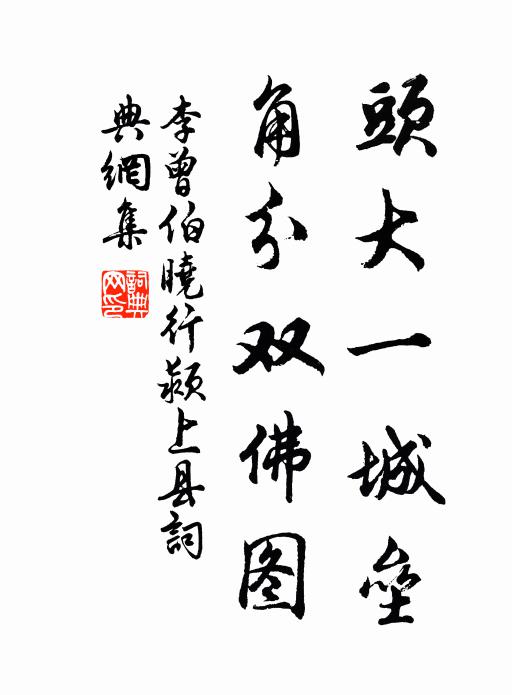 頭大一城壘
角分双佛图
李曾伯曉行颍上县詞
典網集
詞典
网印